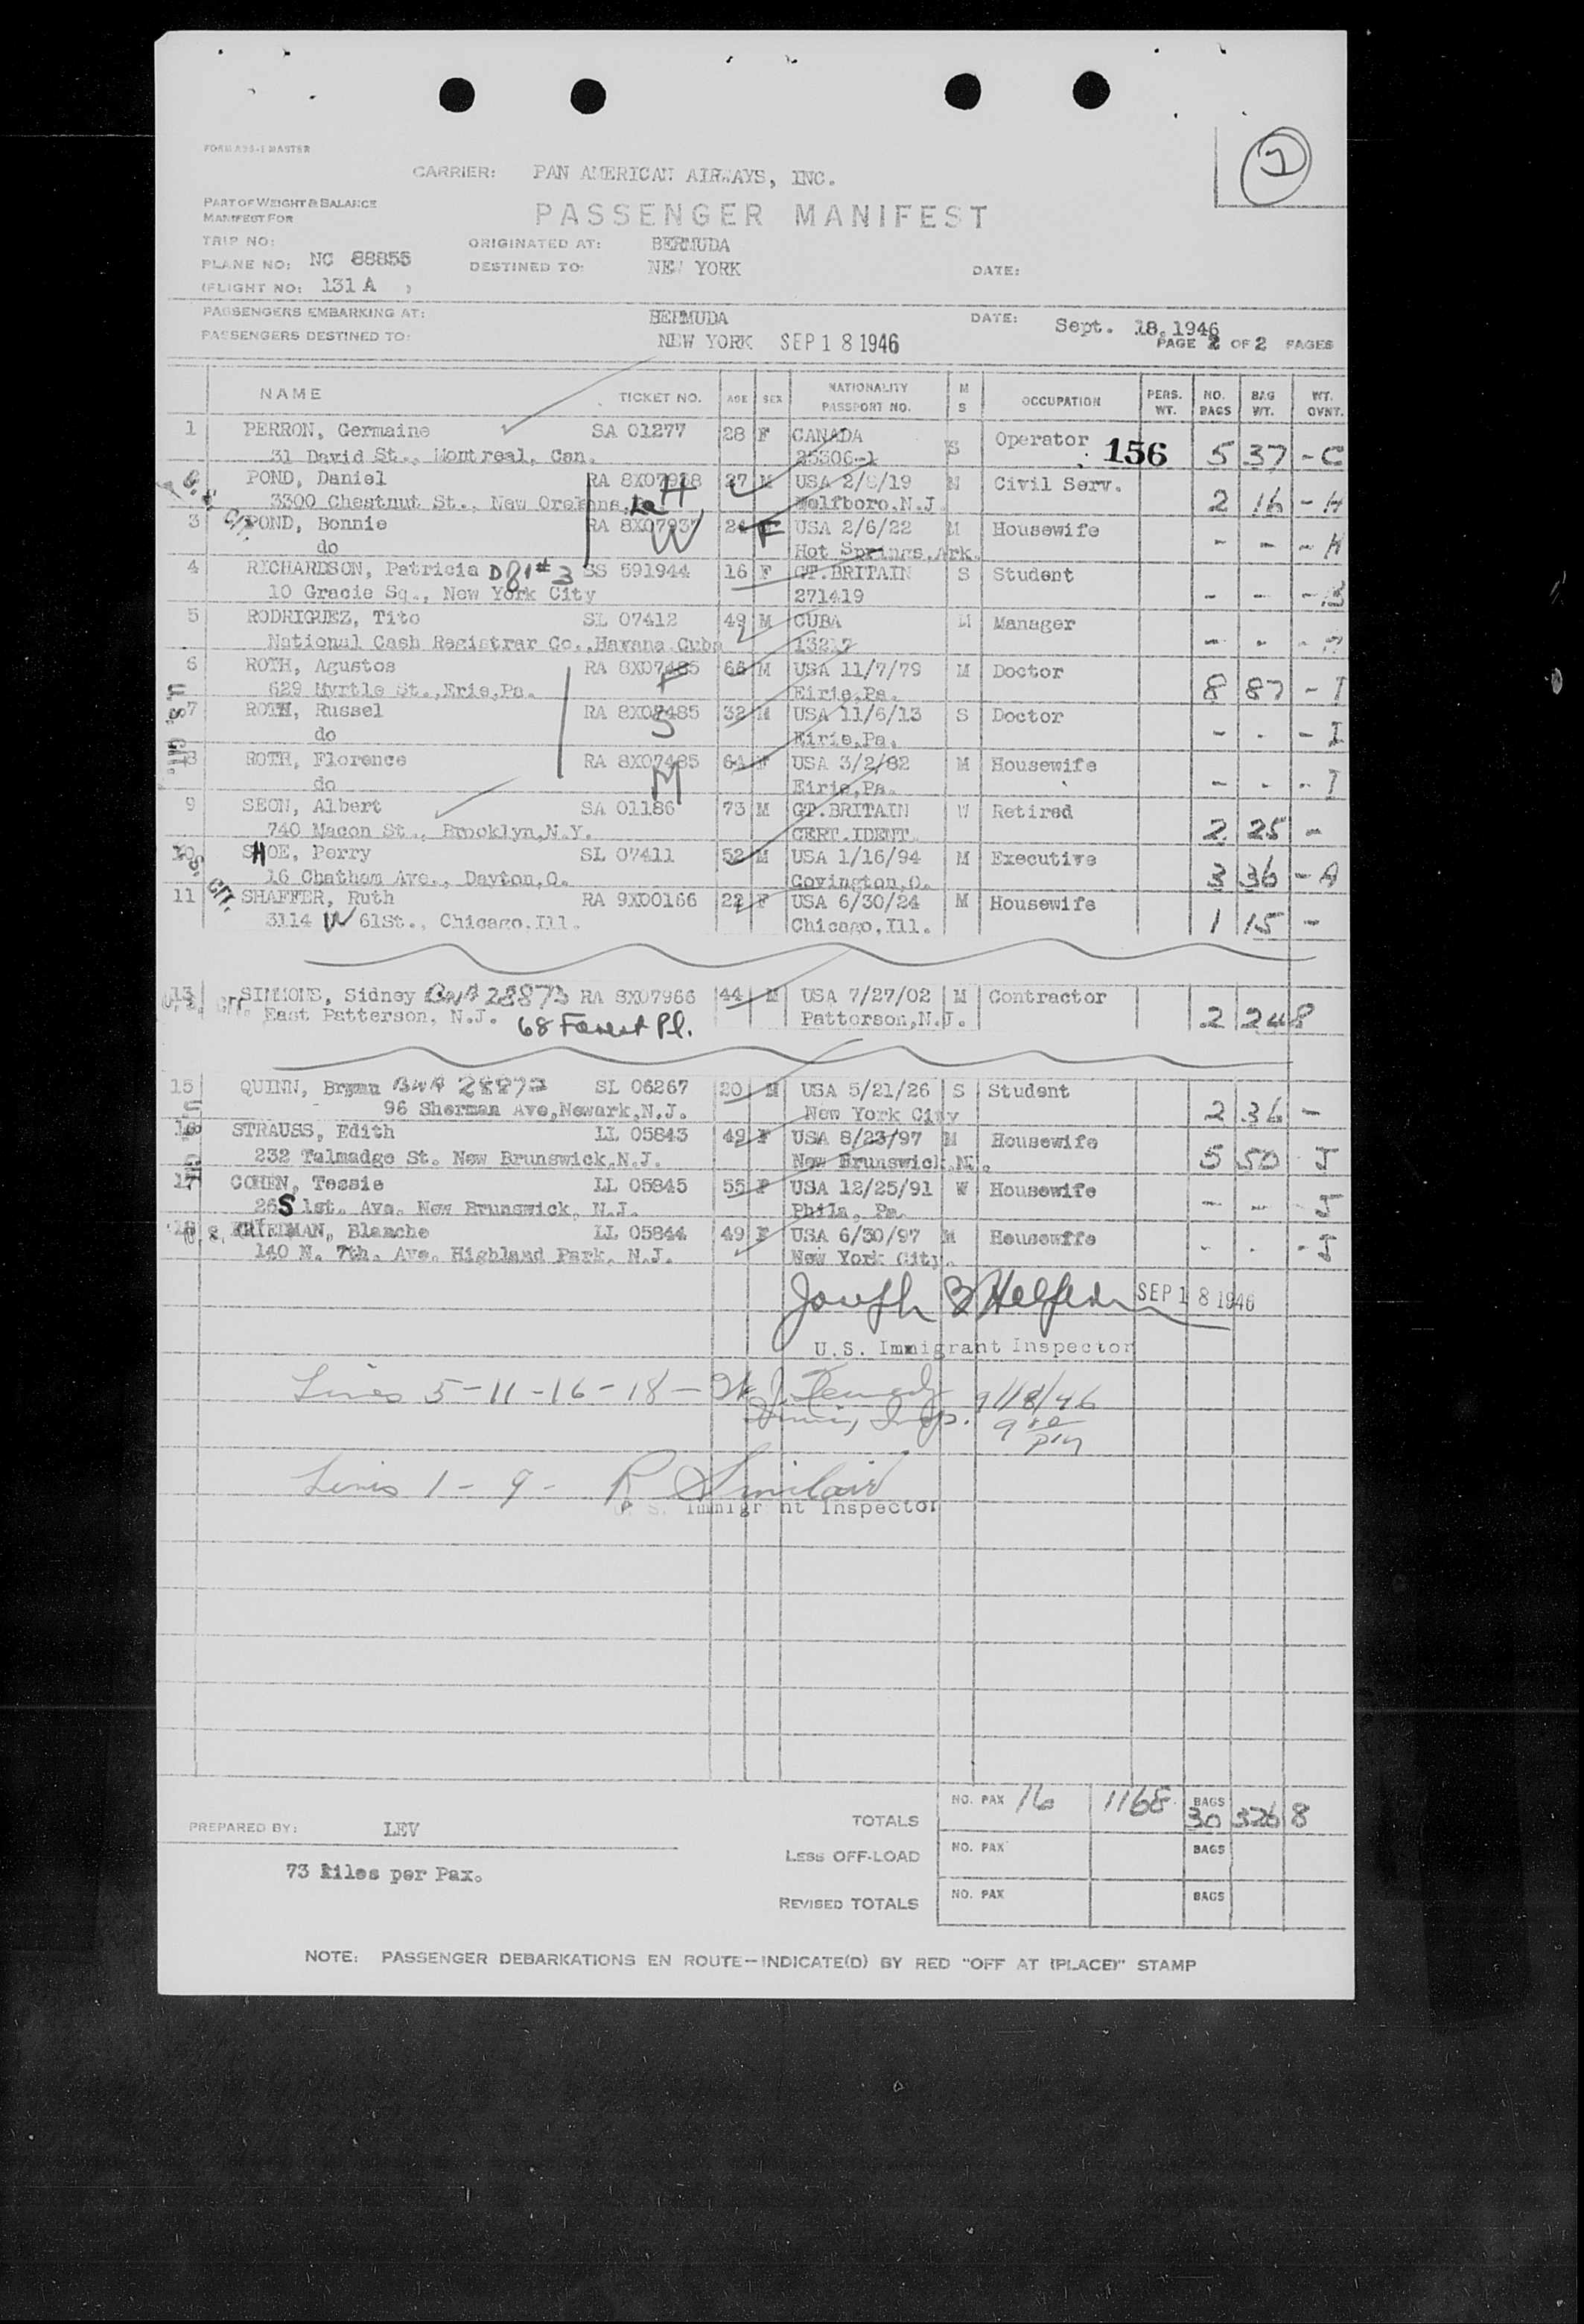 FORM A98-1 MASTER
CARRIER: PAN AMERICAN AIRWAYS, INC.
PART OF WEIGHT & BALANCE
MANIFEST FOR
PASSENGER MANIFEST
TRIP NO: ORIGINATED AT: BERMUDA
PLANE NO: NC 88855 DESTINED TO: NEW YORK DATE:
(FLIGHT NO: 131 A )
PASSENGERS EMBARKING AT: BERMUDA DATE: Sept. 18, 1946
PASSENGERS DESTINED TO: NEW YORK SEP 18 1946 PAGE 2 OF 2 PAGES
NAME TICKET NO. AGE SEX NATIONALITY PASSPORT NO. M S OCCUPATION PERS. WT. NO. BAGS BAG WT. WT. OVNT.
1 PERRON, Germaine SA 01277 28 F CANADA S Operator 156 5 37 - C
31 David St., Montreal, Can. 25306-1
POND, Daniel RA 8X07938 H 27 M USA 2/ /19 M Civil Serv. 2 16 - H
3300 Chestnut St., New Orleans, La Wolfboro, N.J.
3 POND, Bonnie RA 8X07937 W 24 F USA 2/6/22 M Housewife - - - H
do Hot Springs, Ark.
4 RICHARDSON, Patricia D81#3 SS 591944 16 F GT.BRITAIN S Student - - - B
10 Gracie Sq., New York City 271419
5 RODRIGUEZ, Tito SL 07412 49 M CUBA M Manager - - -
National Cash Registrar Co., Havana Cuba 13217
6 ROTH, Agustos RA 8X07485 F 66 M USA 11/7/79 M Doctor 8 87 - I
629 Myrtle St., Erie, Pa. Eirie, Pa.
7 ROTH, Russel RA 8X07485 S 32 M USA 11/6/13 S Doctor - - - I
do Eirie, Pa.
8 ROTH, Florence RA 8X07485 M 64 F USA 3/2/82 M Housewife - - - I
do Eirie, Pa.
9 SEON, Albert SA 01186 73 M GT.BRITAIN W Retired 2 25 -
740 Macon St., Brooklyn, N.Y. CERT.IDENT.
10 SHOE, Perry SL 07411 52 M USA 1/16/94 M Executive 3 36 - A
16 Chatham Ave., Dayton, O. Covington, O.
11 SHAFFER, Ruth RA 9X00166 22 F USA 6/30/24 M Housewife 1 15 -
3114 W 61St., Chicago, Ill. Chicago, Ill.
13 SIMMONS, Sidney 28873 RA 8X07966 44 M USA 7/27/02 M Contractor 2 24 8
East Patterson, N.J. 68 Forest Pl. Pattorson, N.J.
15 QUINN, Bryan 28872 SL 06267 20 M USA 5/21/26 S Student 2 36 -
96 Sherman Ave, Newark, N.J. New York City
16 STRAUSS, Edith LL 05843 49 F USA 8/23/97 M Housewife 5 50 J
232 Talmadge St. New Brunswick, N.J. New Brunswick N.
17 COHEN, Tessie LL 05845 55 F USA 12/25/91 W Housewife - - - J
26 S 1st. Ave. New Brunswick, N.J. Phila, Pa.
18 FRIEDMAN, Blanche LL 05844 49 F USA 6/30/97 M Housewffe - - - J
140 N. 7th. Ave. Highland Park, N.J. New York City.
SEP 18 1946
U.S. Immigrant Inspector
Lines 5-11-16-18- 9/18/46
Insp. 9 pm
Lines 1-9- R Sinclair
U. S. Immigrant Inspector
TOTALS NO. PAX 16 1168 BAGS 30 326 8
PREPARED BY: LEV
LESS OFF-LOAD NO. PAX BAGS
73 kilos per Pax.
REVISED TOTALS NO. PAX BAGS
NOTE: PASSENGER DEBARKATIONS EN ROUTE—INDICATE(D) BY RED "OFF AT (PLACE)" STAMP